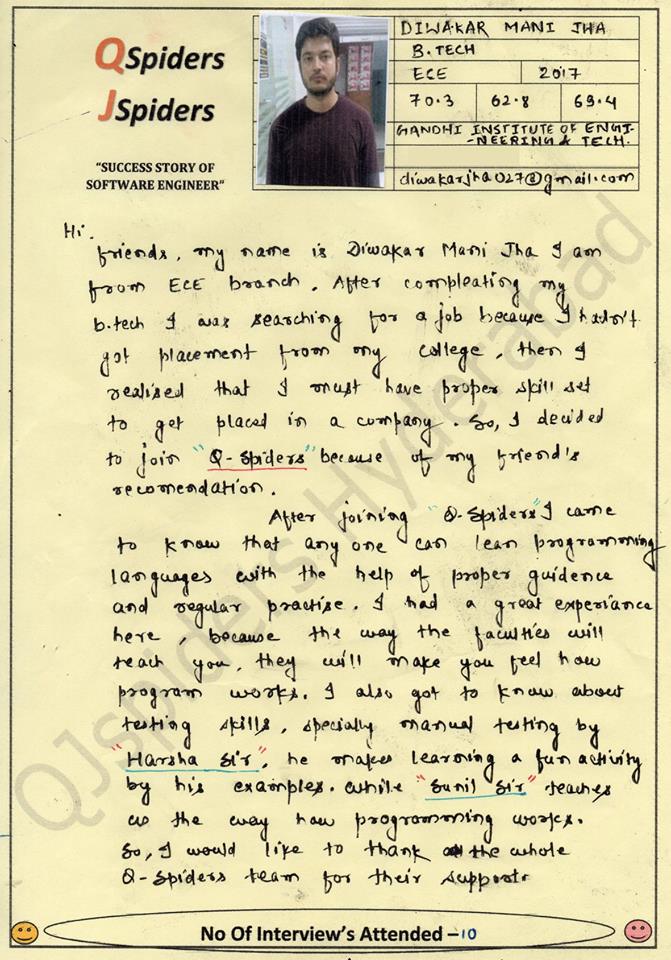 QSpiders
JSpiders
"SUCCESS STORY OF
SOFTWARE ENGINEER"
DIWAKAR MANI JHA
B.TECH
ECE 2017
70.3 62.8 69.4
GANDHI INSTITUTE OF ENGI-
-NEERING & TECH.
diwakarjha027@gmail.com
Hi.
friends, my name is Diwakar Mani Jha I am
from ECE branch. After compleating my
b.tech I was searching for a job because I hadn't
got placement from my college, then I
realised that I must have proper skill set
to get placed in a company. So, I decided
to join "Q-Spiders" because of my friend's
recomendation.
After joining "Q-Spiders" I came
to know that any one can lean programming
languages with the help of proper guidence
and regular practise. I had a great experiance
here, because the way the faculties will
teach you, they will make you feel how
program works. I also got to know about
testing skills, specially manual testing by
"Harsha Sir", he makes learning a fun activity
by his examples. while "Sunil Sir" teaches
us the way how programming works.
So, I would like to thank the whole
Q-Spiders team for their support.
No Of Interview's Attended -10
QJspiders Hyderabad